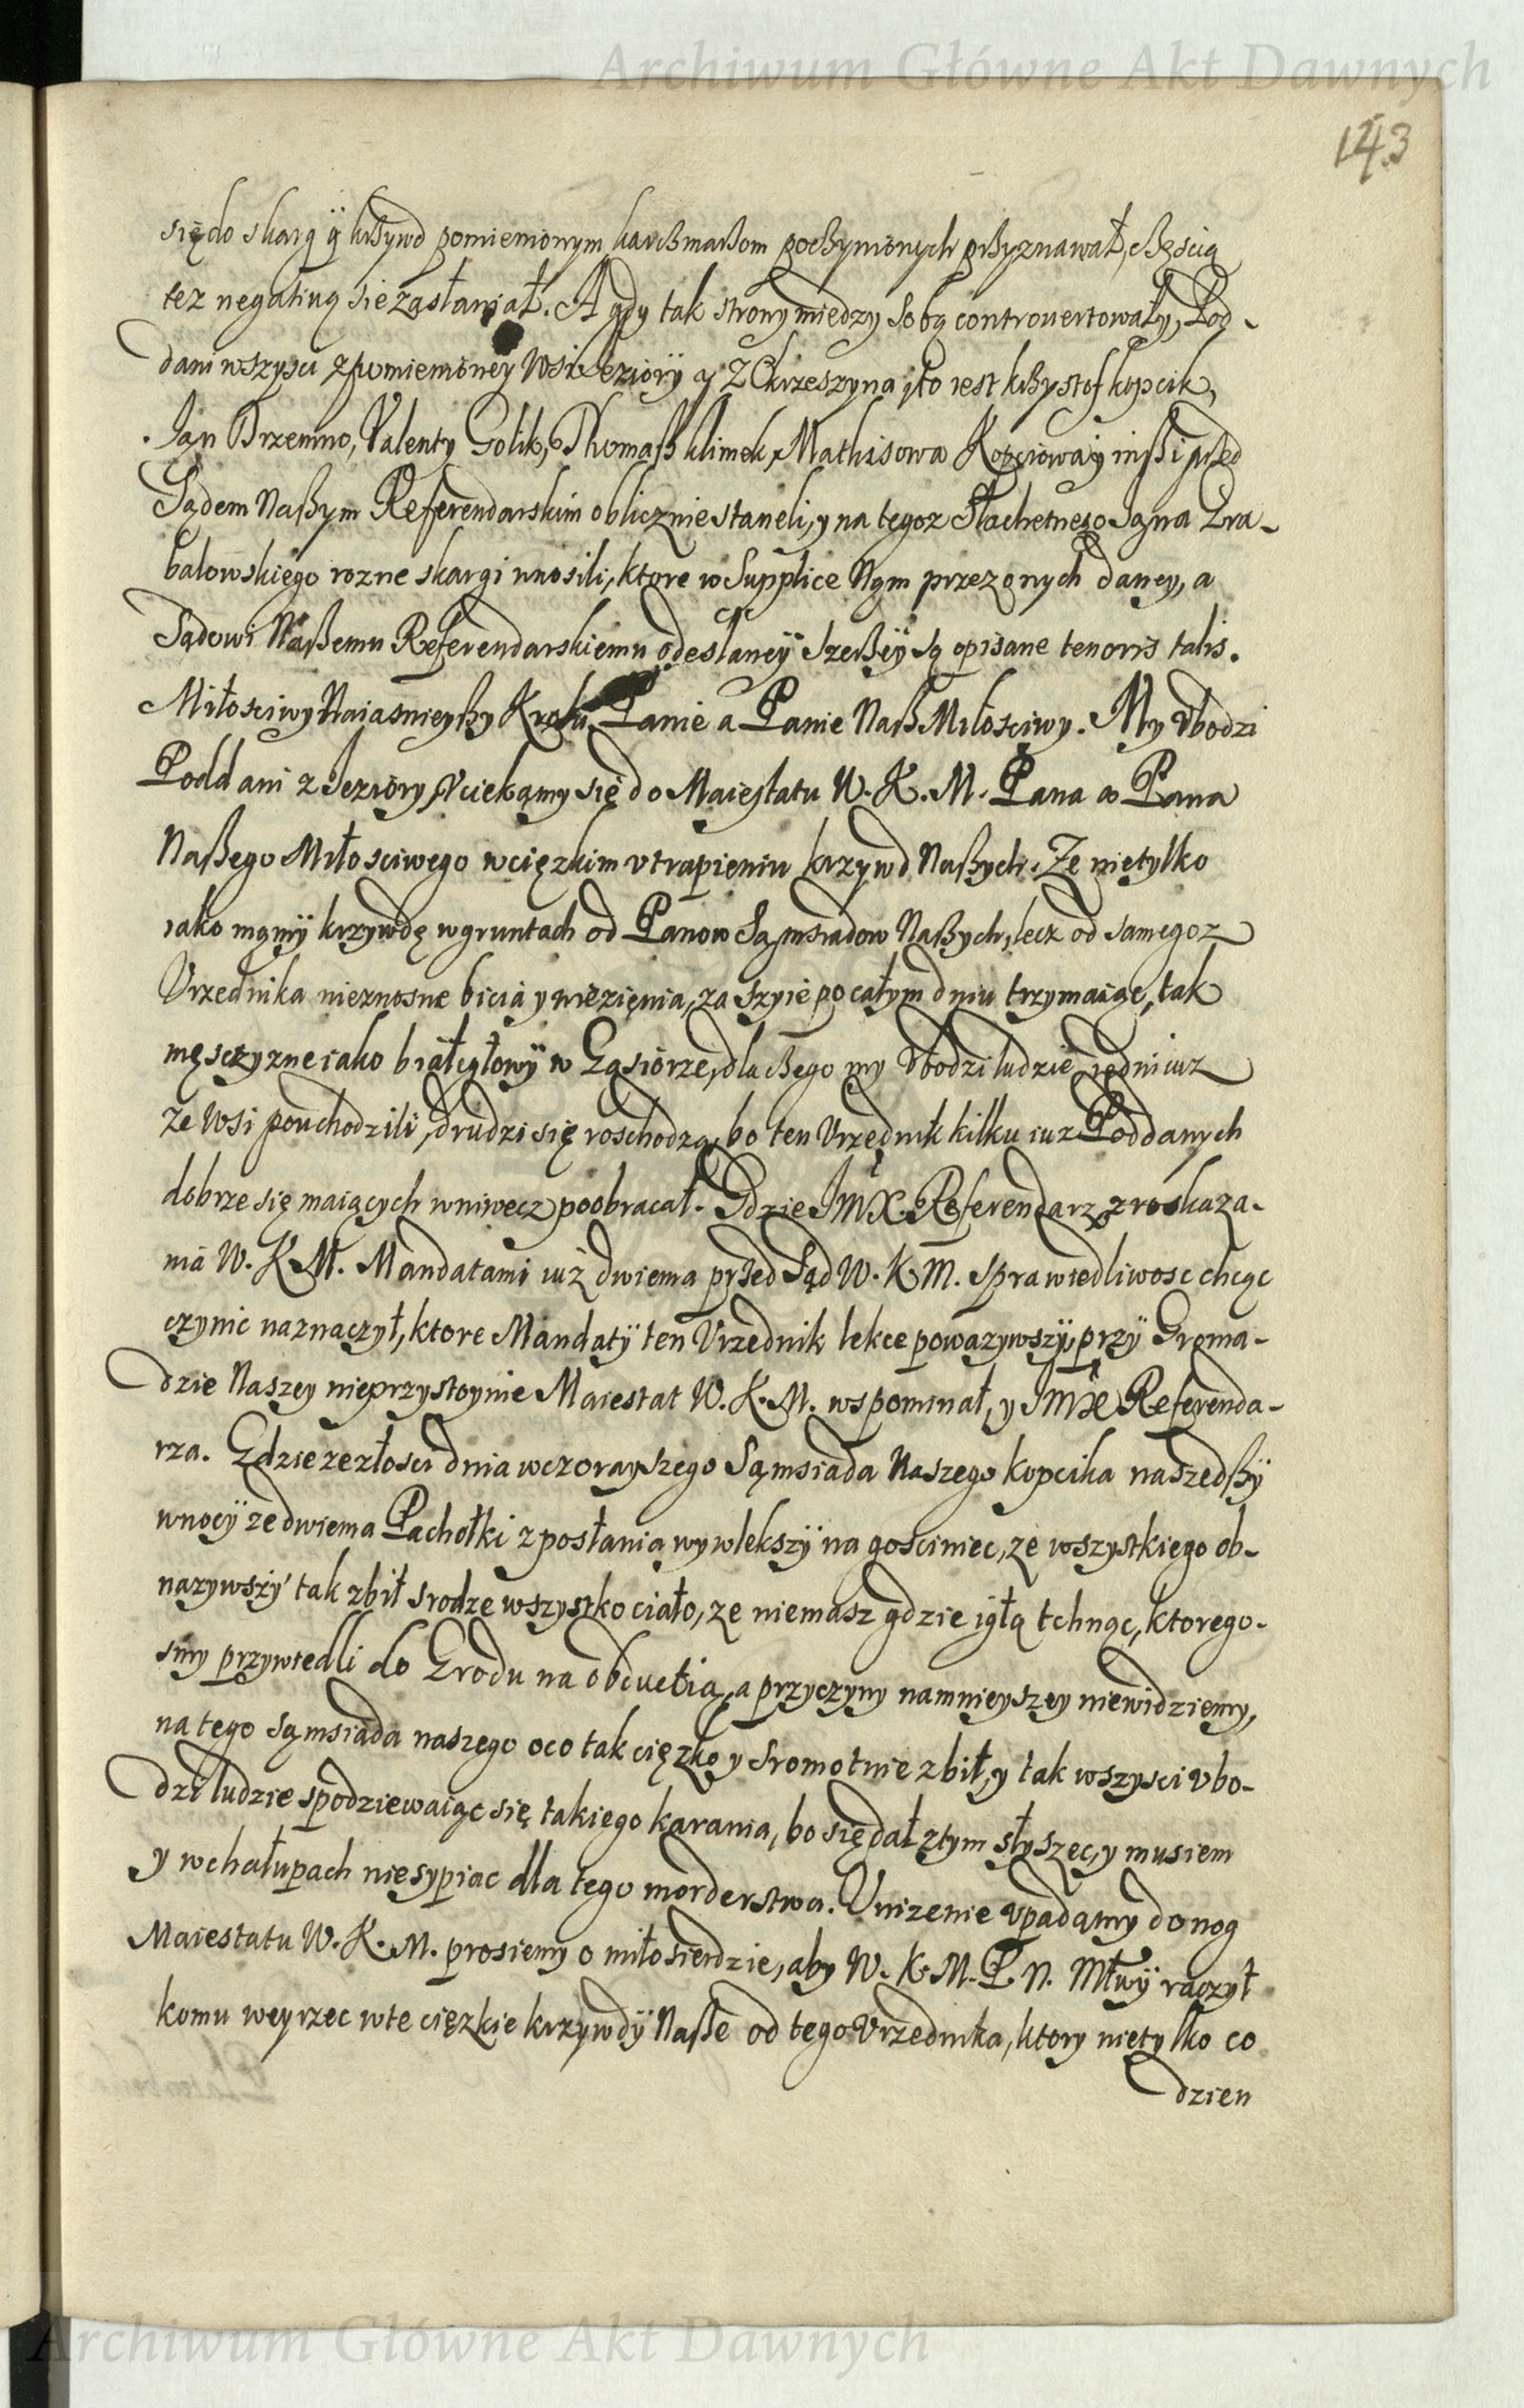 Archiwum Główne Akt Dawnych
143
się do skarg ÿ krßywd pomienionym karcßmarßom pocßynionych prßyznawał, cßęscią
tez negatiuą się zasłaniał. A gdy tak strony między sobą controuertowały, Pod-
dani wszyscy z pomienioney Wsi Jeziorÿ y z Okrzeszyna, to iest Krßystof Kopcik,
Jan Brzemno, Valenty Golik, Thomaß Klimek, Mathisowa Kopciowa ÿ inßi prßed
Sądem Naßym Referendarskim oblicznie staneli, y na tegoz Slachetnego Jana Gra-
balowskiego rozne skargi wnosili, ktore w Supplice Nam przez onych daney, a
Sądowi Naßemu Referendarskiemu odesłaneÿ szerßeÿ są opisane tenoris talis.
Miłosciwy Naiasnieyßy Krolu, Panie a Panie Naß Miłosciwy. My Vbodzi
Poddani z Jeziory Vciekamy się do Maiestatu W. K. M. Pana a Pana
Naßego Miłosciwego w cięzkim vtrapieniu krzywd Naßych. Ze nietylko
iako mamÿ krzywdę w gruntach od Panow Sąmsiadow Naßych, lecz od samegoz
Vrzednika nieznosne bicia y więzięnia, za szyie po całym dniu trzymaiąc, tak
męsczyzne iako białegłowÿ w Gąsiorze, dla cßego my Vbodzi ludzie iedni iuz
ze wsi pouchodzili, drudzi się roschodzą, bo ten Vrzędnik kilku iuz Poddanych
dobrze się maiących wniwecz poobracał. Gdzie JMX. Referendarz z roskaza-
nia W. K. M. Mandatami iuż dwiema przed Sąd W. K. M. sprawiedliwosc chcąc
czynic naznaczył, ktore Mandatÿ ten Vrzednik lekce powazywszÿ, przÿ Groma-
dzie Naszey nieprzystoynie Maiestat W. K. M. wspominał, y JMX Referenda-
rza. Gdzie ze złosci dnia wczorayszego Sąmsiada Naszego Kopcika naszedßÿ
w nocÿ ze dwiema Pachołki z posłania wywlekszÿ na gosciniec, ze wszystkiego ob-
nazywszÿ tak zbił srodze wszystko ciało, ze niemasz gdzie igłą tchnąc, ktorego-
smy przywiedli do Grodu na obductią, a przyczyny namnieyszey niewidziemy,
na tego sąmsiada naszego oco tak cięzko y sromotnie zbił, y tak wszysci vbo-
dzi ludzie spodziewaiąc się takiego karania, bo się dał z tym słyszec, y musiem
y w chałupach nie sypiac dla tego morderstwa. Vnizenie vpadamy do nog
Maiestatu W. K. M. prosiemy o miłosierdzie, aby W. K. M. P. N. Młwÿ raczył
komu weyrzec w te cięzkie krzywdÿ Naße od tego Vrzednika, ktory nietylko co
dzien
Archiwum Główne Akt Dawnych